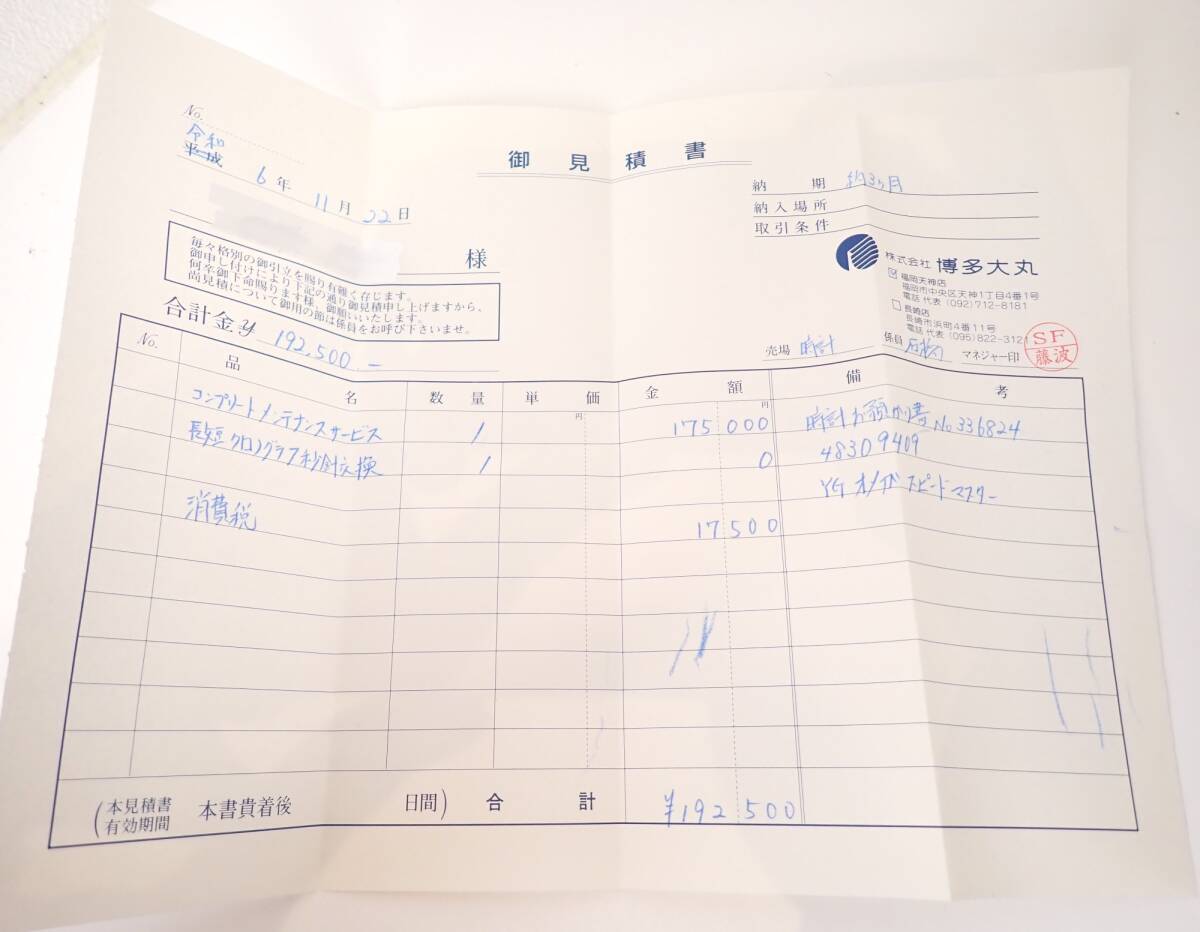 No.
令和
平成 6年 11月 22日
御見積書
納期 約3ヶ月
納入場所
取引条件
様
毎々格別の御引立を賜り有難く存じます。
御申し付けにより下記の通り御見積申し上げますから、
何卒御下命賜ります様、御願いいたします。
尚見積について御用の節は係員をお呼び下さいませ。
株式会社 博多大丸
福岡天神店
福岡市中央区天神1丁目4番1号
電話 代表 (092)712-8181
長崎店
長崎市浜町4番11号
電話 代表 (095)822-3121
合計金¥ 192,500.-
売場 時計 係員 マネジャー印 SF 藤波
No. 品名 数量 単価 金額 備考
円 円
コンプリートメンテナンスサービス 1 175000 時計お預かり書No336824
長短クロノグラフ秒針交換 1 0 48309409
YG オメガ スピードマスター
消費税 17500
(本見積書有効期間 本書貴着後 日間) 合計 ¥192500